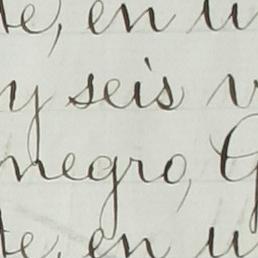 te, en u
y seis v
negro, G
te, en u